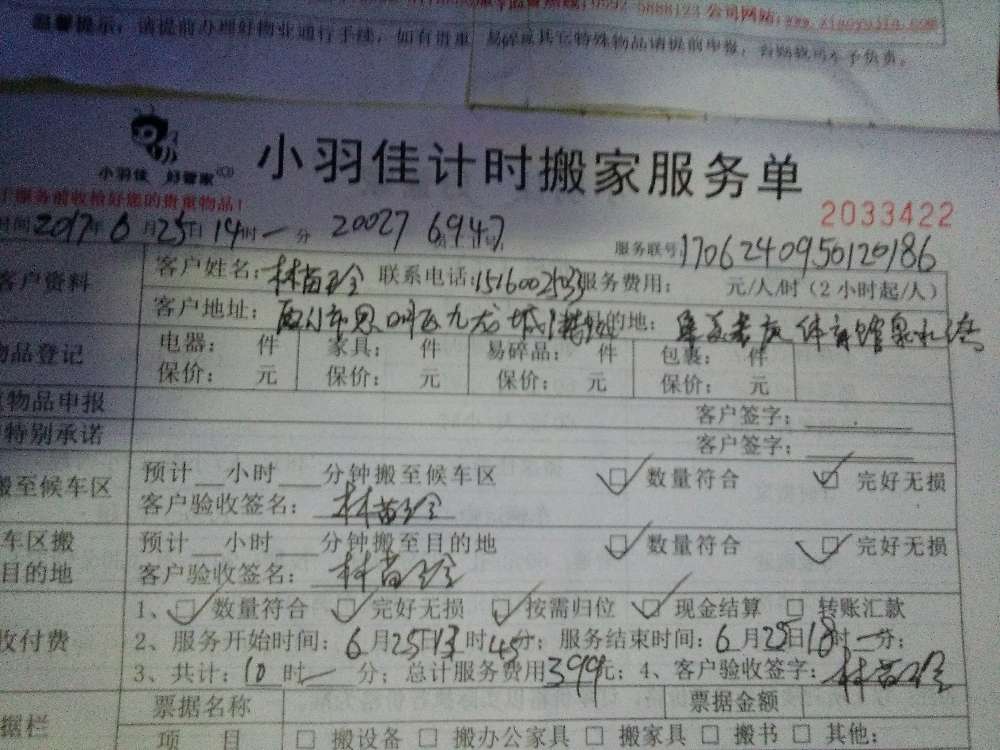 服务监督热线：0592-5888123 公司网站：www.xiaoyujia.com
温馨提示：请提前办理好物业通行手续，如有贵重 易碎或其它特殊物品请提前申报，否则我司不予负责。
小羽佳 好管家
小羽佳计时搬家服务单
服务前收拾好您的贵重物品！
2033422
时间2017年6月25日14时一分 20027 6947
服务联号：1706240950120186
客户资料 客户姓名： 联系电话： 服务费用： 元/人/时（2小时起/人）
客户地址： 目的地：
物品登记 电器： 件 家具： 件 易碎品： 件 包裹： 件
保价： 元 保价： 元 保价： 元 保价： 元
物品申报 客户签字：
特别承诺 客户签字：
搬至候车区 预计 小时 分钟搬至候车区 数量符合 完好无损
客户验收签名：
车区搬 预计 小时 分钟搬至目的地 数量符合 完好无损
目的地 客户验收签名：
收付费 1、 数量符合 完好无损 按需归位 现金结算 转账汇款
2、服务开始时间：6月25日13时45分；服务结束时间：6月25日18时一分；
3、共计：10时一分；总计服务费用399元；4、客户验收签字：
据栏 票据名称 票据金额
项 目 搬设备 搬办公家具 搬家具 搬书 其他：